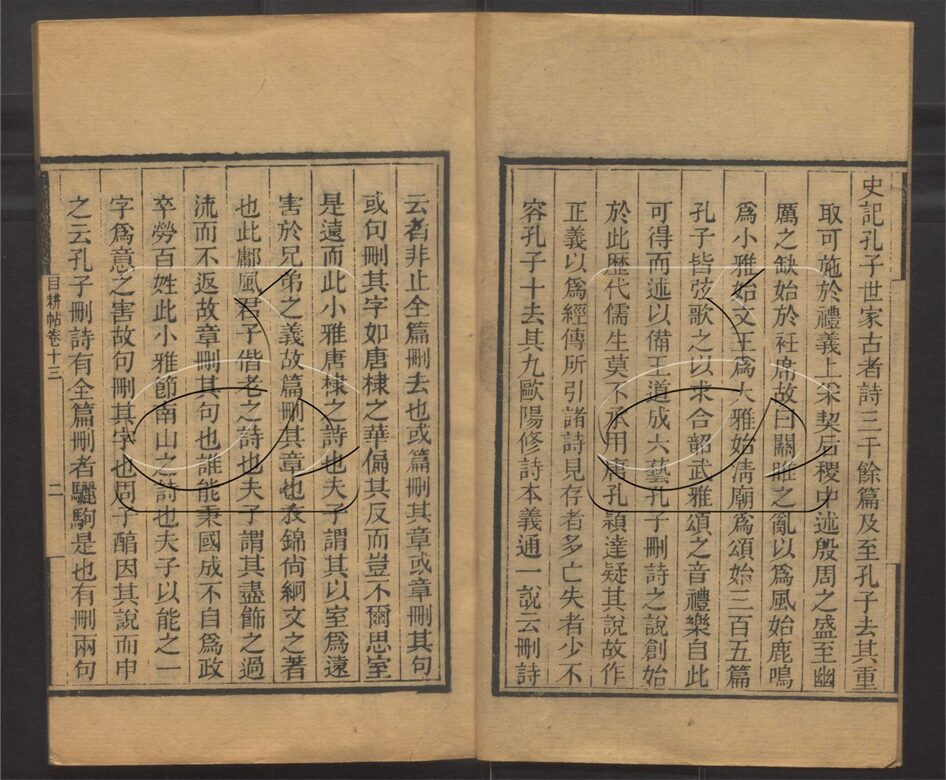 史記孔子世家古者詩三千餘篇及至孔子去其重
取可施於禮義上采契后稷中述殷周之盛至幽
厲之缺始於衽席故曰關雎之亂以為風始鹿鳴
為小雅始文王爲大雅始清廟爲頌始三百五篇
孔子皆弦歌之以求合韶武雅頌之音禮樂自此
可得而述以備王道成六藝孔子刪詩之說創始
於此歷代儒生莫不承用唐孔穎達疑其說故作
正義以爲經傳所引諸詩見存者多亡失者少不
容孔子十去其九歐陽修詩本義通一說云刪詩
云者非止全篇刪去也或篇刪其章或章刪其句
或句刪其字如唐棣之華偏其反而豈不爾思室
是遠而此小雅唐棣之詩也夫子謂其以室爲遠
害於兄弟之義故篇刪其章也衣錦尙絅文之著
也此鄘風君子偕老之詩也夫子謂其盡飾之過
流而不返故章刪其句也誰能秉國成不自爲政
卒勞百姓此小雅節南山之詩也夫子以能之一
字爲意之害故句刪其字也周子醇因其說而申
之云孔子刪詩有全篇刪者驪駒是也有刪兩句
目耕帖卷十三
二